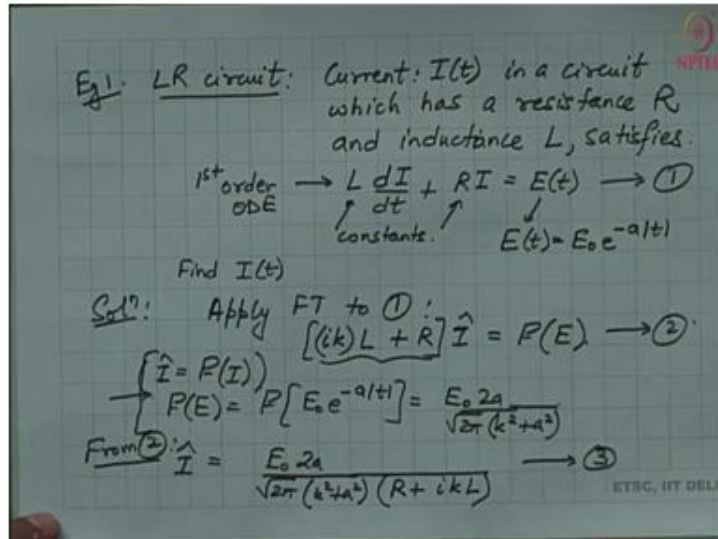 NPTEL
Eg 1. LR circuit: Current: I(t) in a circuit
which has a resistance R
and inductance L, satisfies.
1st order ODE → L dI/dt + RI = E(t) → ①
constants. E(t) = E₀ e^{-a|t|}
Find I(t)
Solⁿ: Apply FT to ①:
[(ik)L + R] Î = F(E) → ②
{Î = F(I)}
→ F(E) = F[E₀ e^{-a|t|}] = E₀ 2a / √2π (k²+a²)
From ②: Î = E₀ 2a / √2π (k²+a²) (R + ikL) → ③
ETSC, IIT DELHI